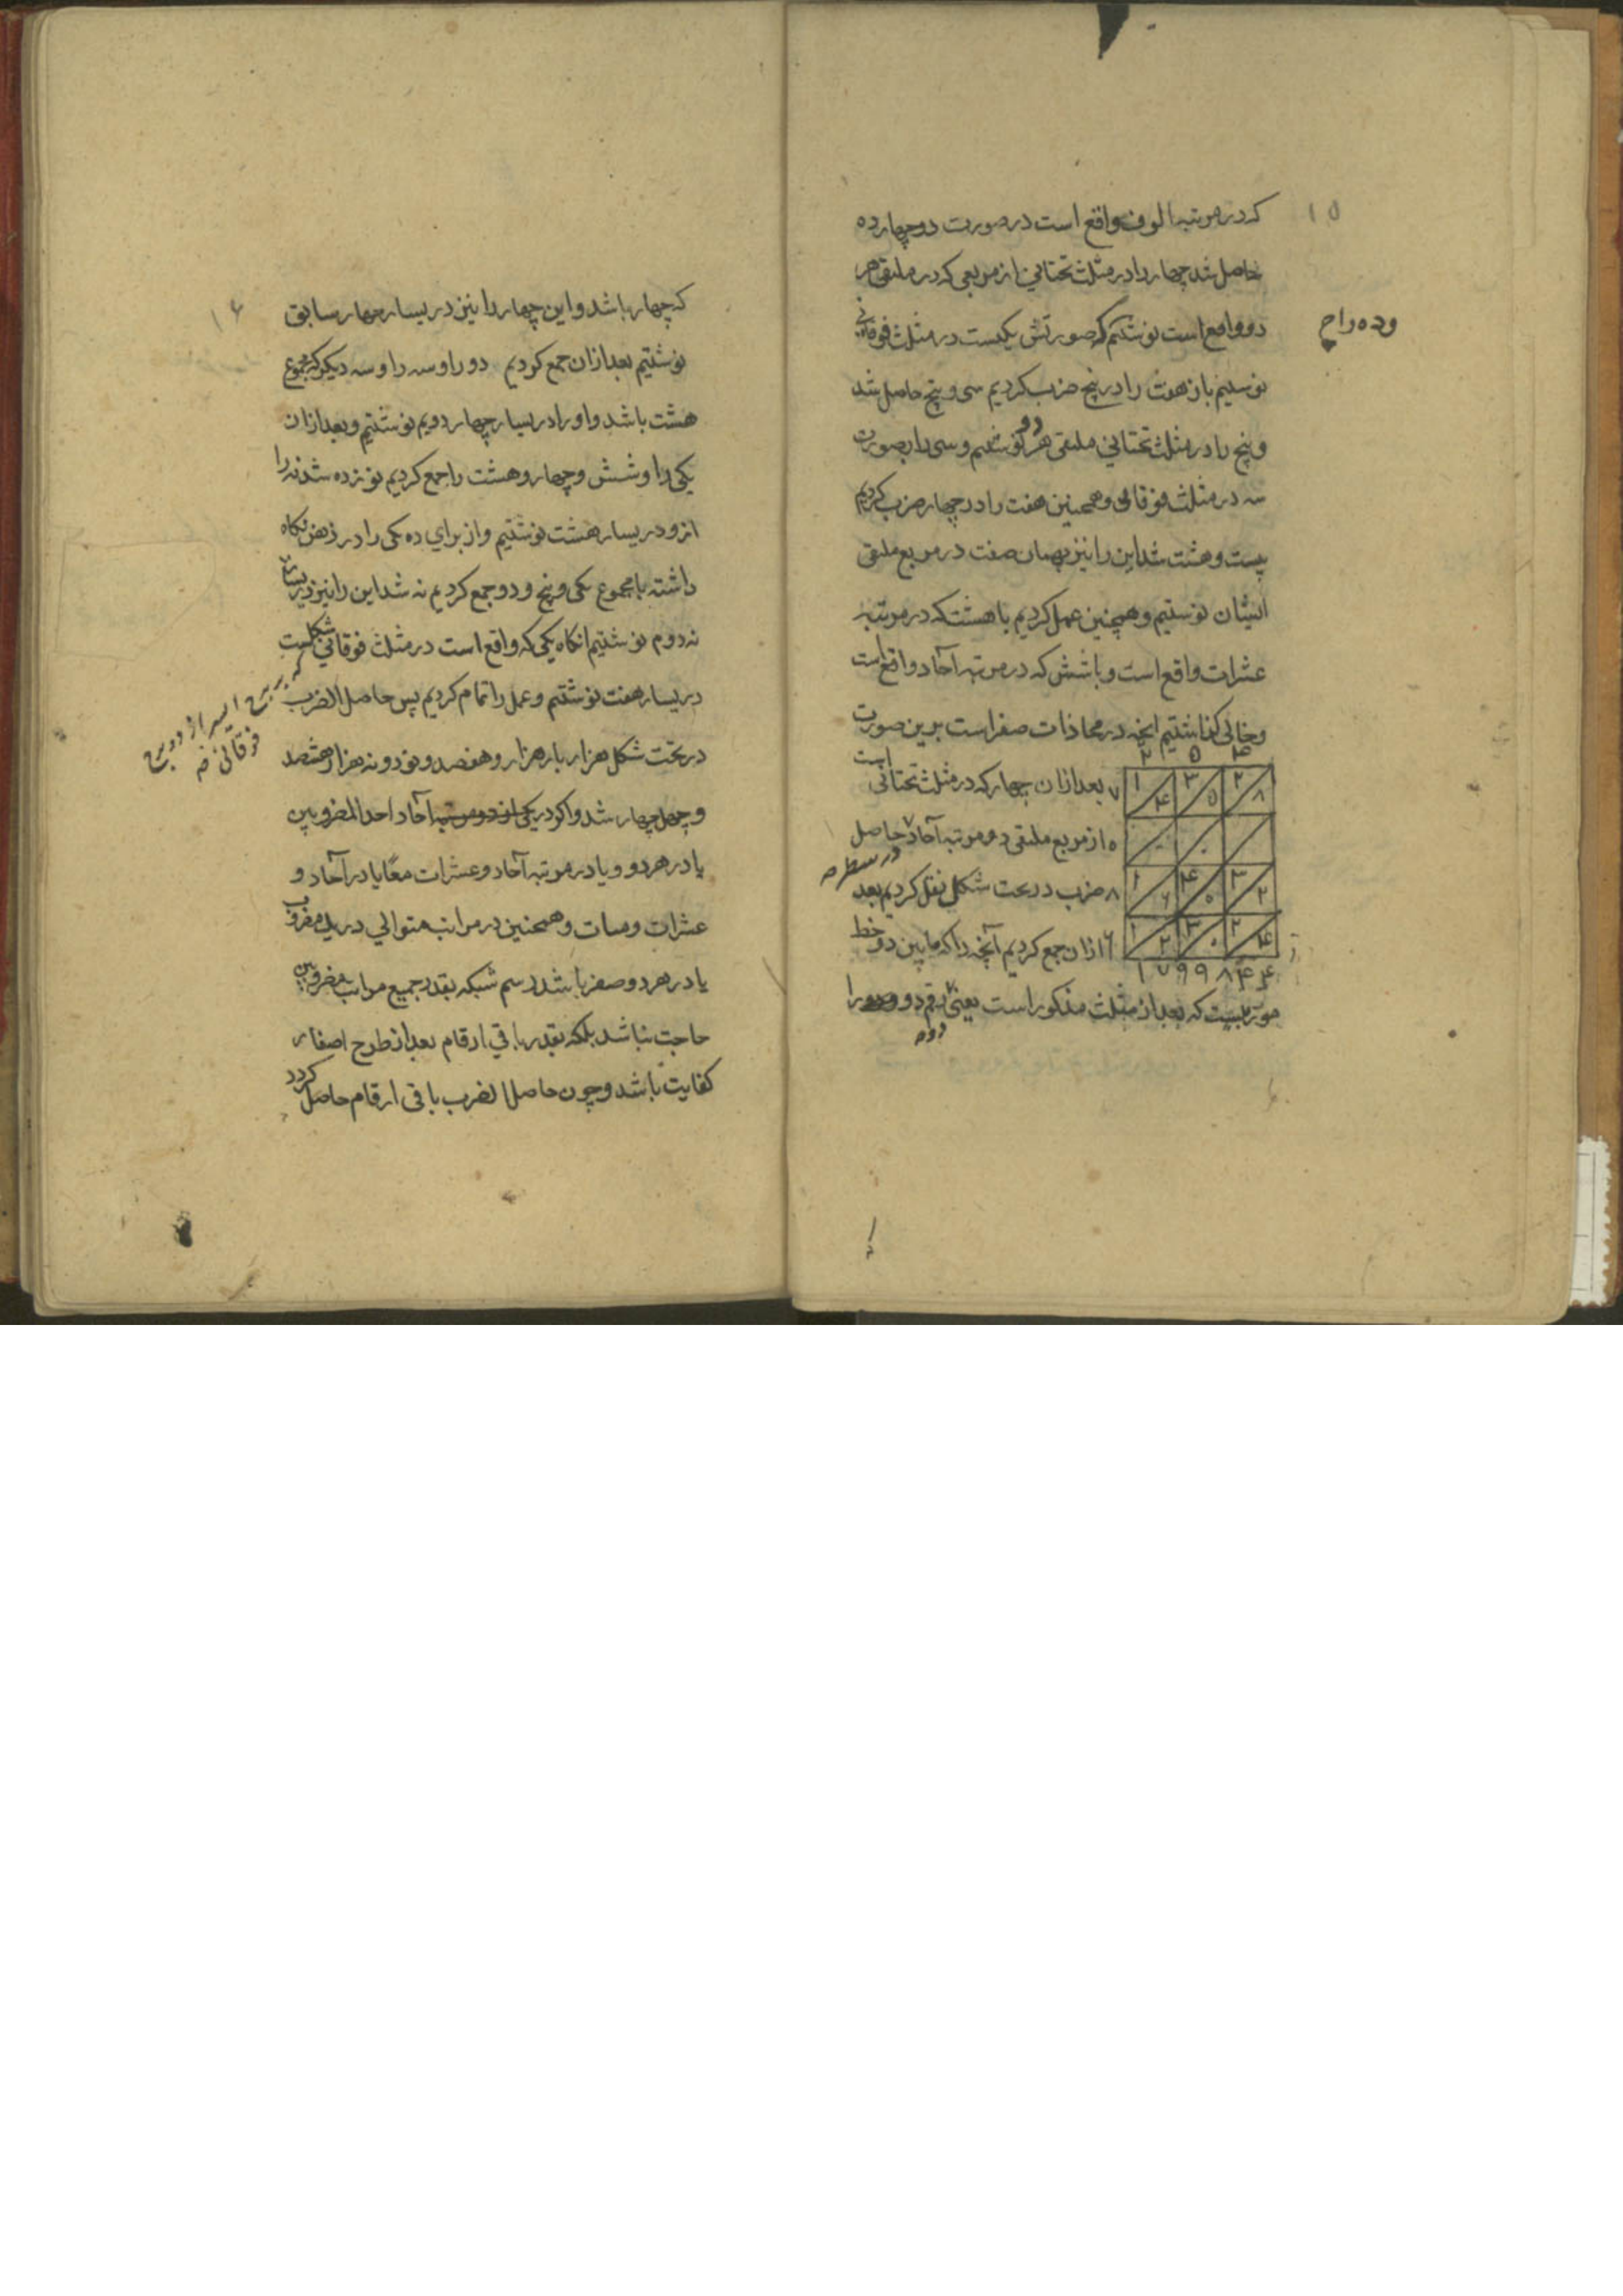 ۱۵
که در مرتبه الوف واقع است در صورت دو چهارده
حاصل شد چهار را در مثلث تحتانی از مربعی که در ملتقی هر
دو واقع است نوشتیم که صورتش یکست در مثلث فوقانی
وده را ح
نوشتیم باز هفت را در پنج ضرب کردیم سی و پنج حاصل شد
و پنج را در مثلث تحتانی ملتقی هر دو نوشتیم و سی را بصورت
سه در مثلث فوقانی و همچنین هفت را در چهار ضرب کردیم
بیست و هشت شد این را نیز بهمان صفت در مربع ملتقی
ایشان نوشتیم و همچنین عمل کردیم با هشت که در مرتبه
عشرات واقع است و با شش که در مرتبه آحاد واقع است
و خالی گذاشتیم آنچه در محاذات صفر است برین صورت
است
۲ ۵ ۴
۷ ۱ ۴ ۳ ۵ ۲ ۸
۰ ۰ ۰
۸ ۱ ۶ ۴ ۰ ۳ ۲
۶ ۱ ۲ ۳ ۰ ۲ ۴
۱ ۷ ۹ ۹ ۸ ۴ ۴
بعد از ان چهار که در مثلث تحتانی
از مربع ملتقی دو مرتبه آحاد حاصل
در سطر
ضرب در تحت شکل نقل کردیم بعد
ازان جمع کردیم آنچه را که مابین دو خط
موربست که بعد از مثلث مذکور است یعنی رقم دو و دو را
دوم
۱۶
که چهار باشد و این چهار را نیز در یسار چهار سابق
نوشتیم بعد ازان جمع کردیم دو را و سه را و سه دیکر که مجموع
هشت باشد و او را در یسار چهار دویم نوشتیم و بعد ازان
یکی را و شش و چهار و هشت را جمع کردیم نوزده شد نه را
ازو در یسار هشت نوشتیم و از برای ده یکی را در ذهن نکاه
داشته با مجموع یکی و پنج و دو جمع کردیم نه شد این را نیز در یسار
نه دوم نوشتیم انکاه یکی که واقع است در مثلث فوقانی شکلست
در یسار هفت نوشتیم و عمل را تمام کردیم پس حاصل الضرب
مربع ایسر از دو مربع
فوقانی
در تحت شکل هزار بار هزار و هفصد و نود و نه هزار و هشتصد
و چهل چهار شد و اکر در یکی از دو مرتبه آحاد احد المضروبین
یا در هر دو و یا در مرتبه آحاد و عشرات معًا یا در آحاد و
عشرات و مـٔات و همچنین در مراتب متوالی در یک مضروب
یا در هر دو صفر باشد رسم شبکه بقدر جمیع مراتب مضروبین
حاجت نباشد بلکه بقدر باقی ارقام بعد از طرح اصفار
کفایت باشد و چون حاصل الضرب باقی ارقام حاصل کردد